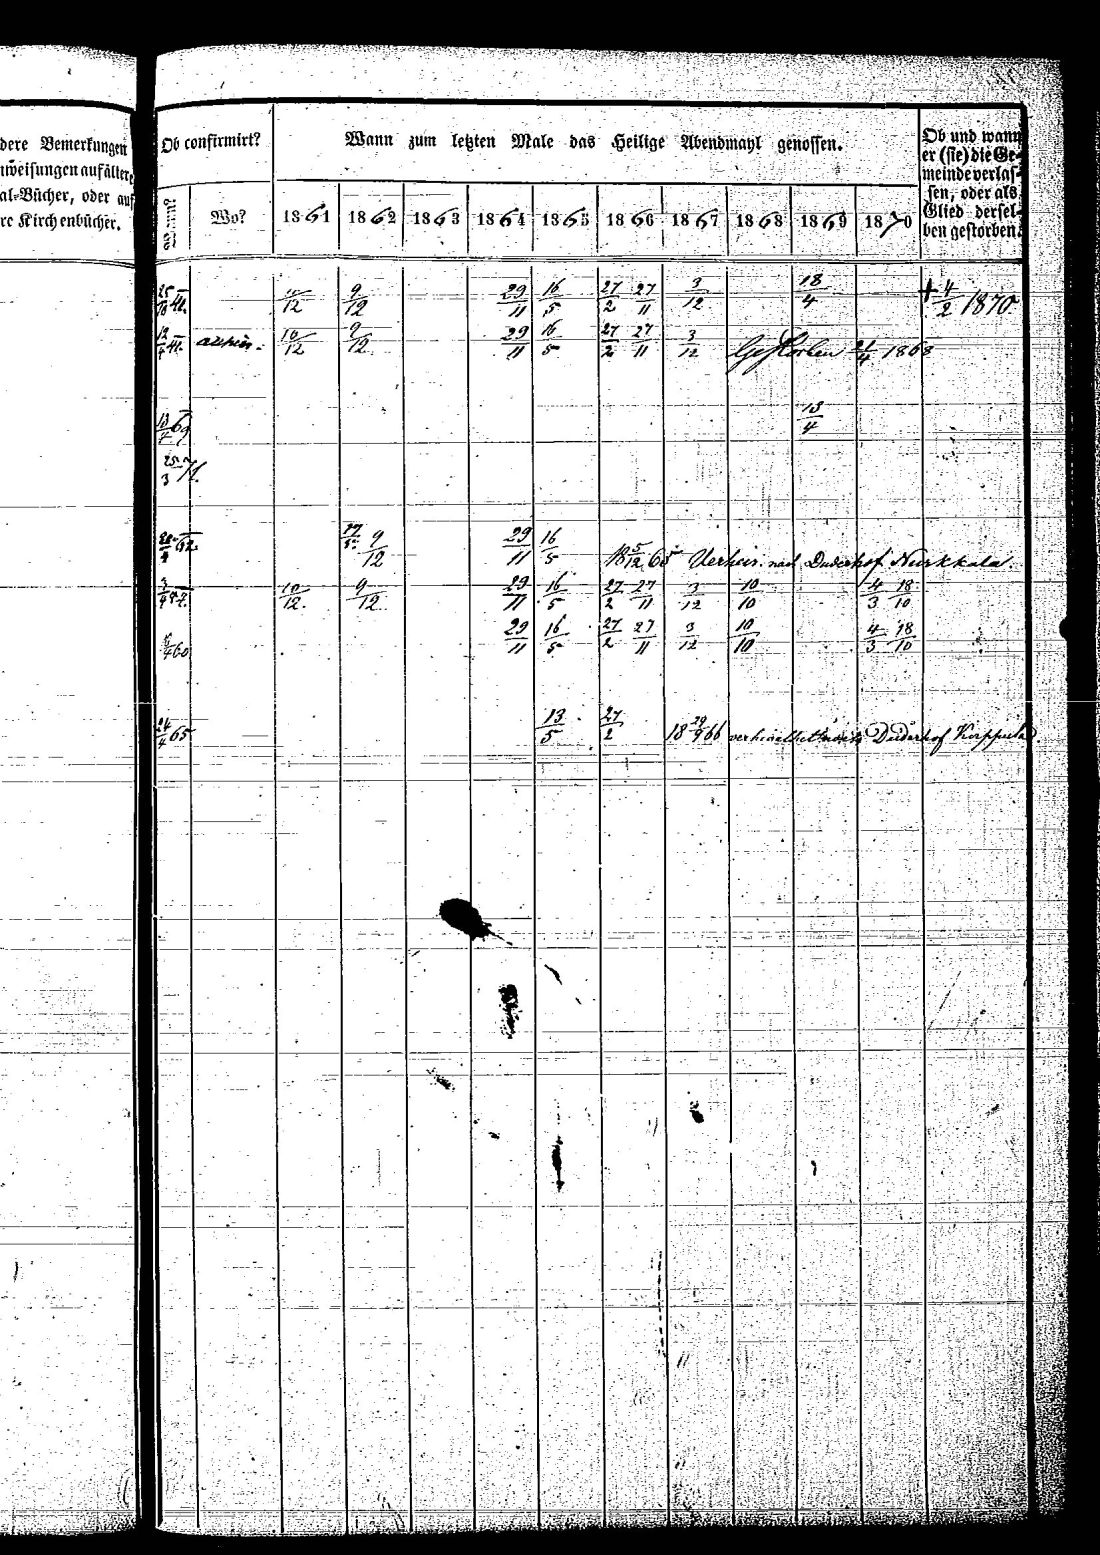 dere Bemerkungen
nweisungen auf ältere
al-Bücher, oder auf
re Kirchenbücher.
Ob confirmirt?
Wann zum letzten Male das Heilige Abendmahl genossen.
Ob und wann
er (sie) die Ge-
meinde verlas-
sen, oder als
Glied dersel-
ben gestorben.
Wann? Wo? 1861 1862 1863 1864 1865 1866 1867 1868 1869 1870
12 9/12 29/11 16/5 27/2 27/11 3/12 18/4 + 4/2 1870
10/12 9/12 29/11 16/5 27/2 27/11 3/12 Gestorben 1868
13/4 69 13/4
25/3 71.
9/12 29/11 16/5 18 5/12 65 Verheir. nach Duderhof Nurkkala.
10/12. 9/12. 29/11 16/5 27/2 27/11 3/12 10/10 4/3 18/10
60 29/11 16/5 27/2 27/11 3/12 10/10 4/3 18/10
24/4 65 13/5 27/2 18 29/9 66 Duderhof Kirppula